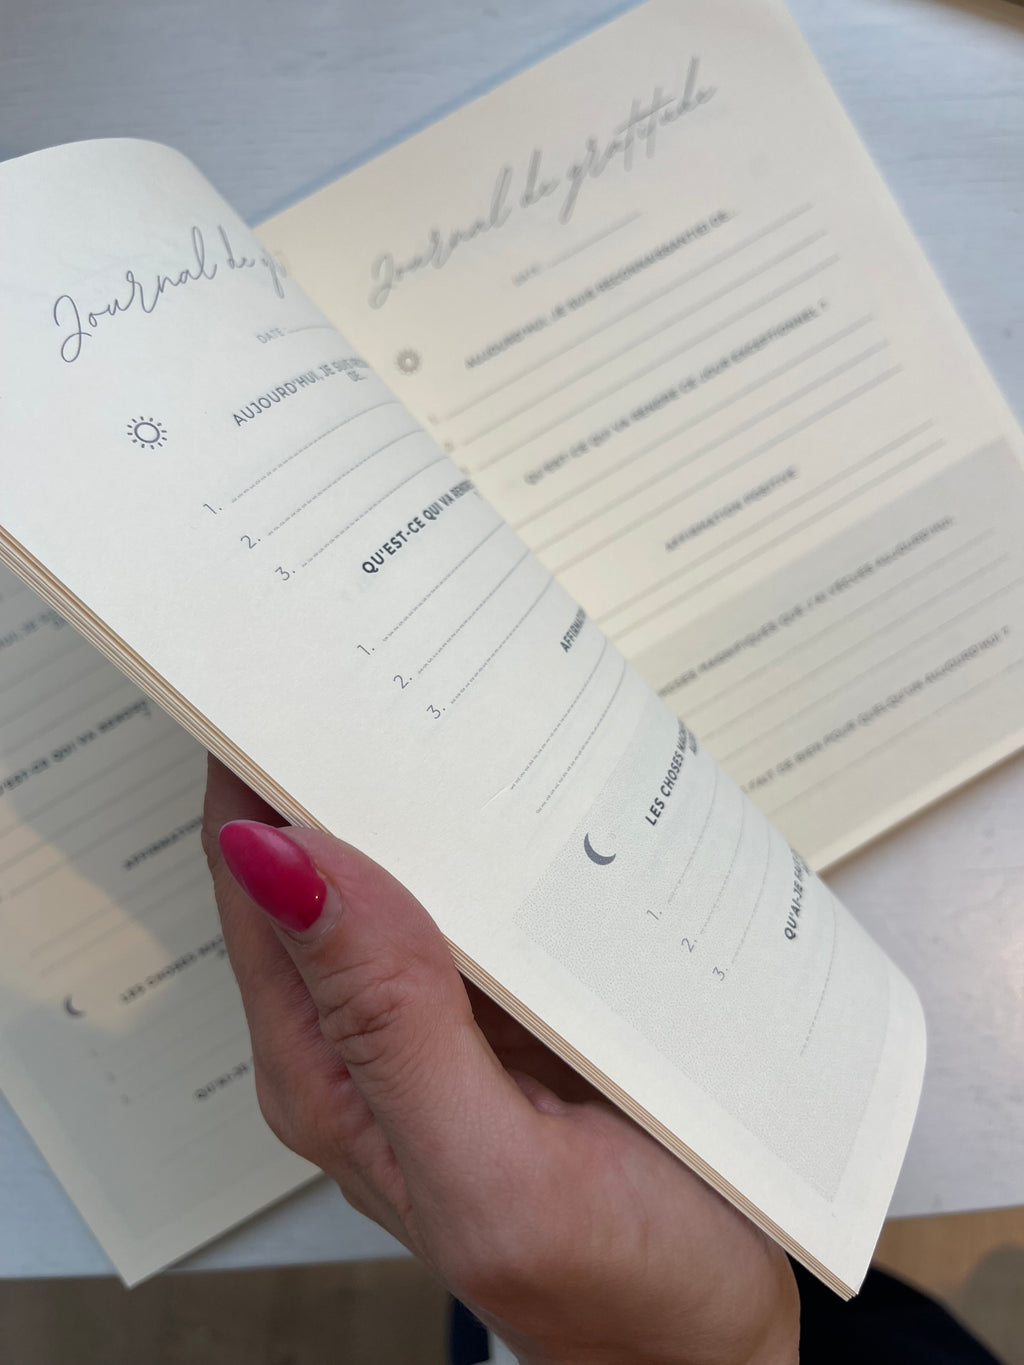 Journal de
DATE
AUJOURD'HUI, JE SUIS
DE...
1.
2.
3.
QU'EST-CE QUI VA RENDRE
1.
2.
3.
LES CHOSES
1.
2.
3.
QU'AI-JE
Journal de gratitude
DATE
AUJOURD'HUI, JE SUIS RECONNAISSANT(E) DE...
QU'EST-CE QUI VA RENDRE CE JOUR EXCEPTIONNEL ?
AFFIRMATION POSITIVE
MAGNIFIQUES QUE J'AI VÉCUES AUJOURD'HUI
FAIT DE BIEN POUR QUELQU'UN AUJOURD'HUI ?
QUI VA RENDRE
LES CHOSES
QU'AI-JE